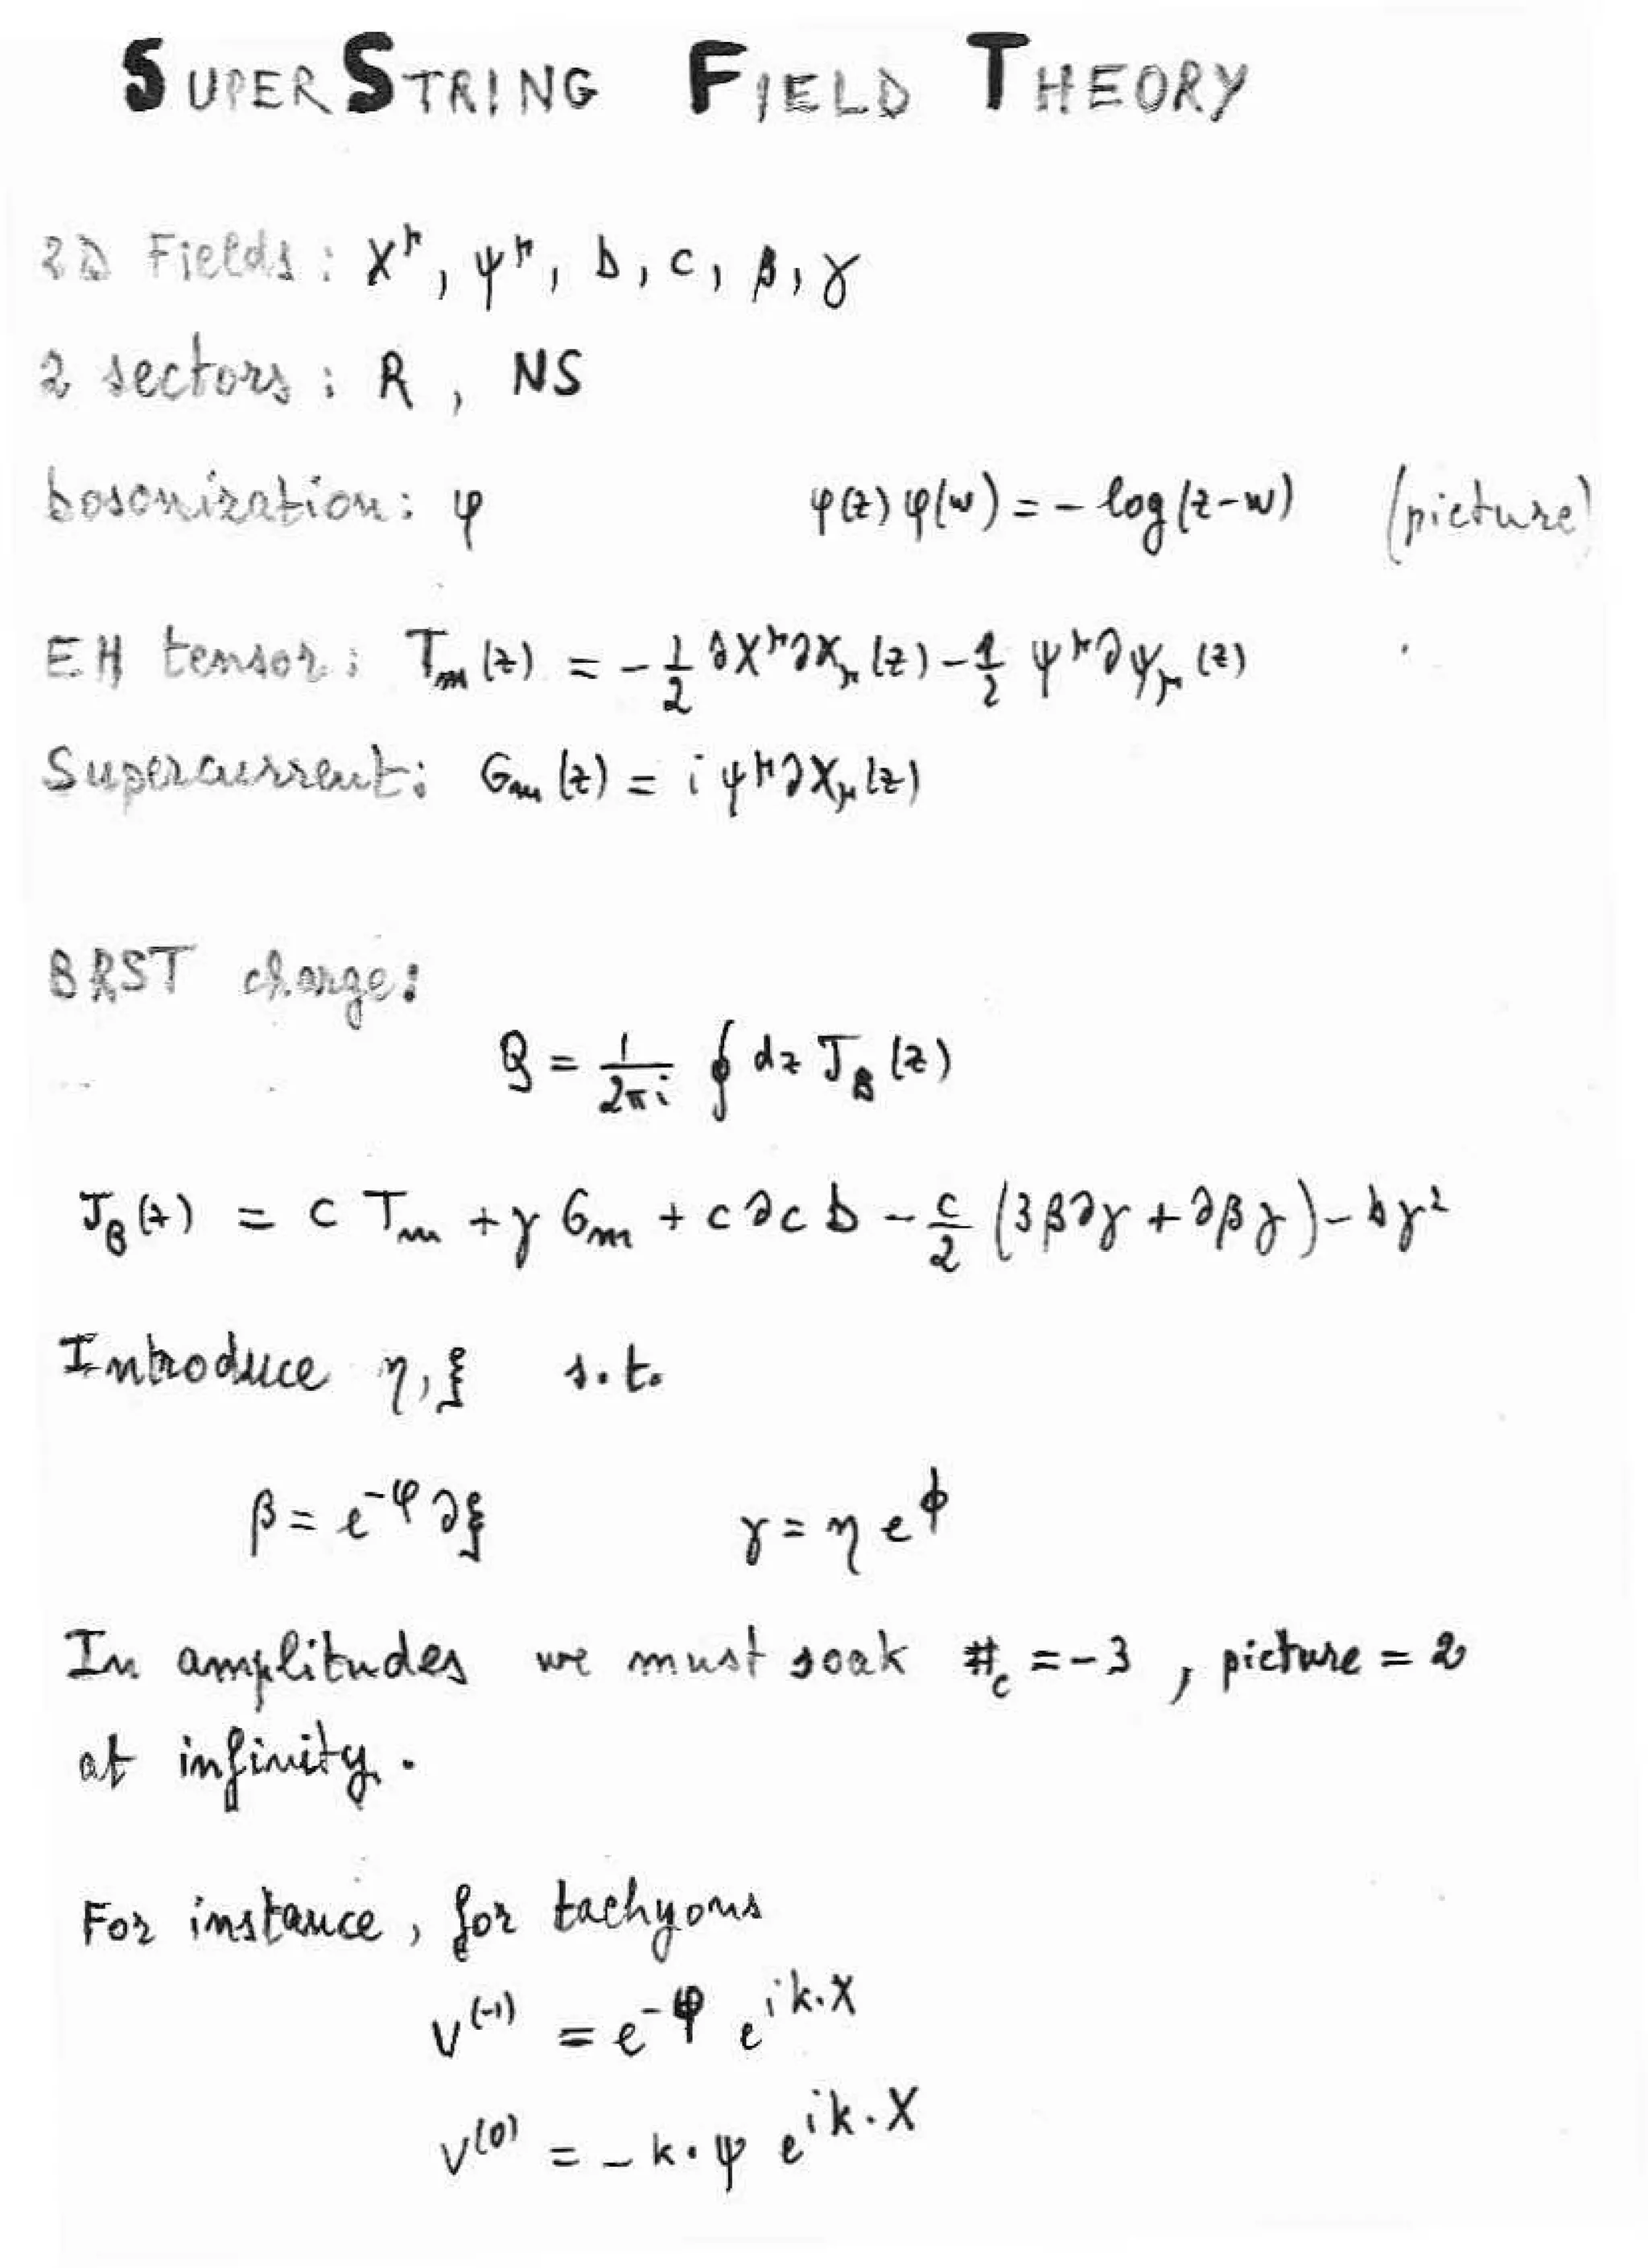 SUPERSTRING FIELD THEORY
2D Fields: X^μ, ψ^μ, b, c, β, γ
2 sectors: R, NS
bosonization: φ φ(z)φ(w) = -log(z-w) (picture)
EH tensor: T_m(z) = -1/2 ∂X^μ∂X_μ(z) - 1/2 ψ^μ∂ψ_μ(z)
Supercurrent: G_m(z) = iψ^μ∂X_μ(z)
BRST charge:
Q = 1/2πi ∮ dz J_B(z)
J_B(z) = c T_m + γ G_m + c∂c b - c/2 (3β∂γ + ∂βγ) - bγ²
Introduce η, ξ s.t.
β = e^{-φ} ∂ξ γ = η e^ϕ
In amplitudes we must soak #_c = -3, picture = 2
at infinity.
For instance, for tachyons
V^{(-1)} = e^{-φ} e^{ik·X}
V^{(0)} = -k·ψ e^{ik·X}